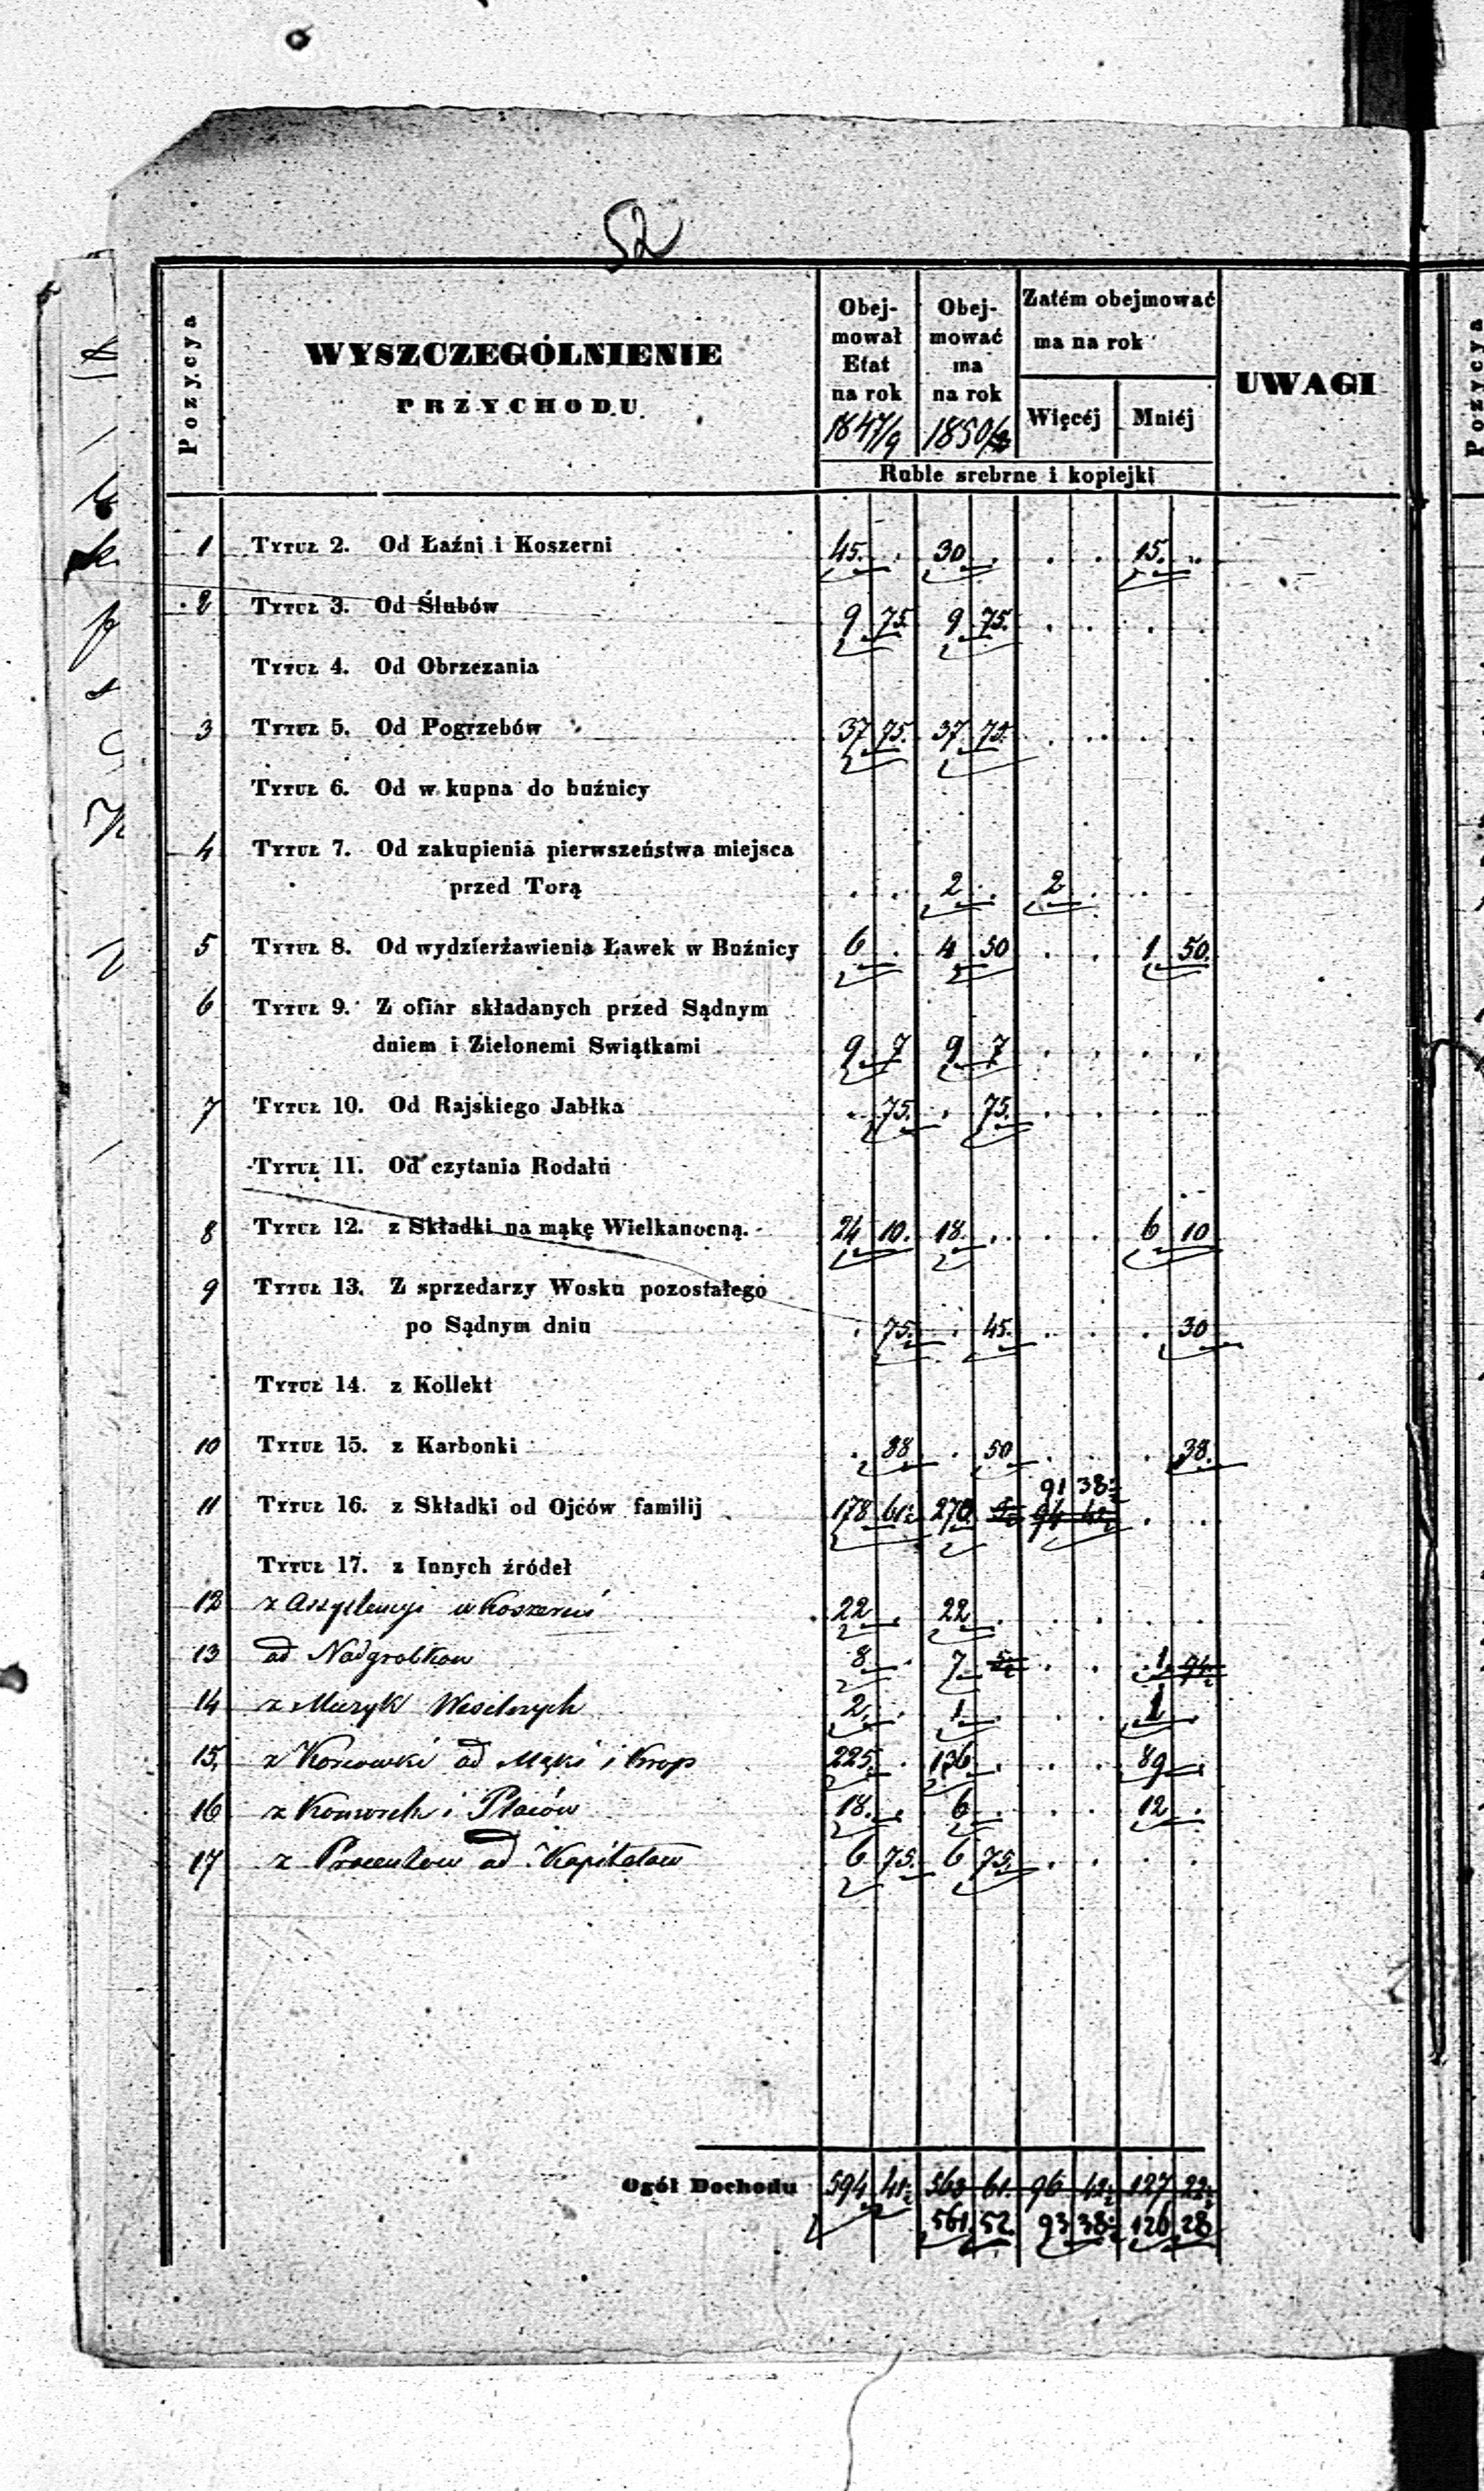 52
Pozycya
WYSZCZEGÓLNIENIE
PRZYCHODU
Obej-
mował
Etat
na rok
1847/9
Obej-
mować
ma
na rok
1850/
Zatém obejmować
ma na rok
Więcéj
Mniéj
UWAGI
Ruble srebrne i kopiejki
1 Tytuł 2. Od Łaźni i Koszerni 45. . 30 . . . 15. .
2 Tytuł 3. Od Ślubów
9 75. 9 75. . . . .
Tytuł 4. Od Obrzezania
3 Tytuł 5. Od Pogrzebów 37 75. 37 75. . . . .
Tytuł 6. Od w kupna do buźnicy
4 Tytuł 7. Od zakupienia pierwszeństwa miejsca
przed Torą . . 2 . 2 . . .
5 Tytuł 8. Od wydzierżawienia Ławek w Buźnicy 6 . 4 50 . . 1 50.
6 Tytuł 9. Z ofiar składanych przed Sądnym
dniem i Zielonemi Swiątkami 9 7 9 7 . . . .
7 Tytuł 10. Od Rajskiego Jabłka . 75. . 75. . . . .
Tytuł 11. Od czytania Rodału
8 Tytuł 12. z Składki na mąkę Wielkanocną. 24 10. 18. . . . 6 10
9 Tytuł 13. Z sprzedarzy Wosku pozostałego
po Sądnym dniu . 75. . 45. . . . 30
Tytuł 14. z Kollekt
10 Tytuł 15. z Karbonki . 88 . 50 . . . 38.
91 38½
11 Tytuł 16. z Składki od Ojców familij 178 61½ 270 . .
Tytuł 17. z Innych źródeł
12 z Assystencyi w Koszerni 22 . 22 . . . . .
13 od Nadgrobków 8 . 7 . . 1
14 z Muzyk Weselnych 2 . 1 . . . 1 .
15. z od Mąki i Krup 225. . 136 . . . 89 .
16 z Komórek i Placów 18. . 6 . . . 12 .
17 z Procentów od Kapitałów 6 75. 6 75. . . . .
Ogół Dochodu 594 41½ 563 61 96 42½ 127 22½
561 52 93 38½ 126 28
Pozycya